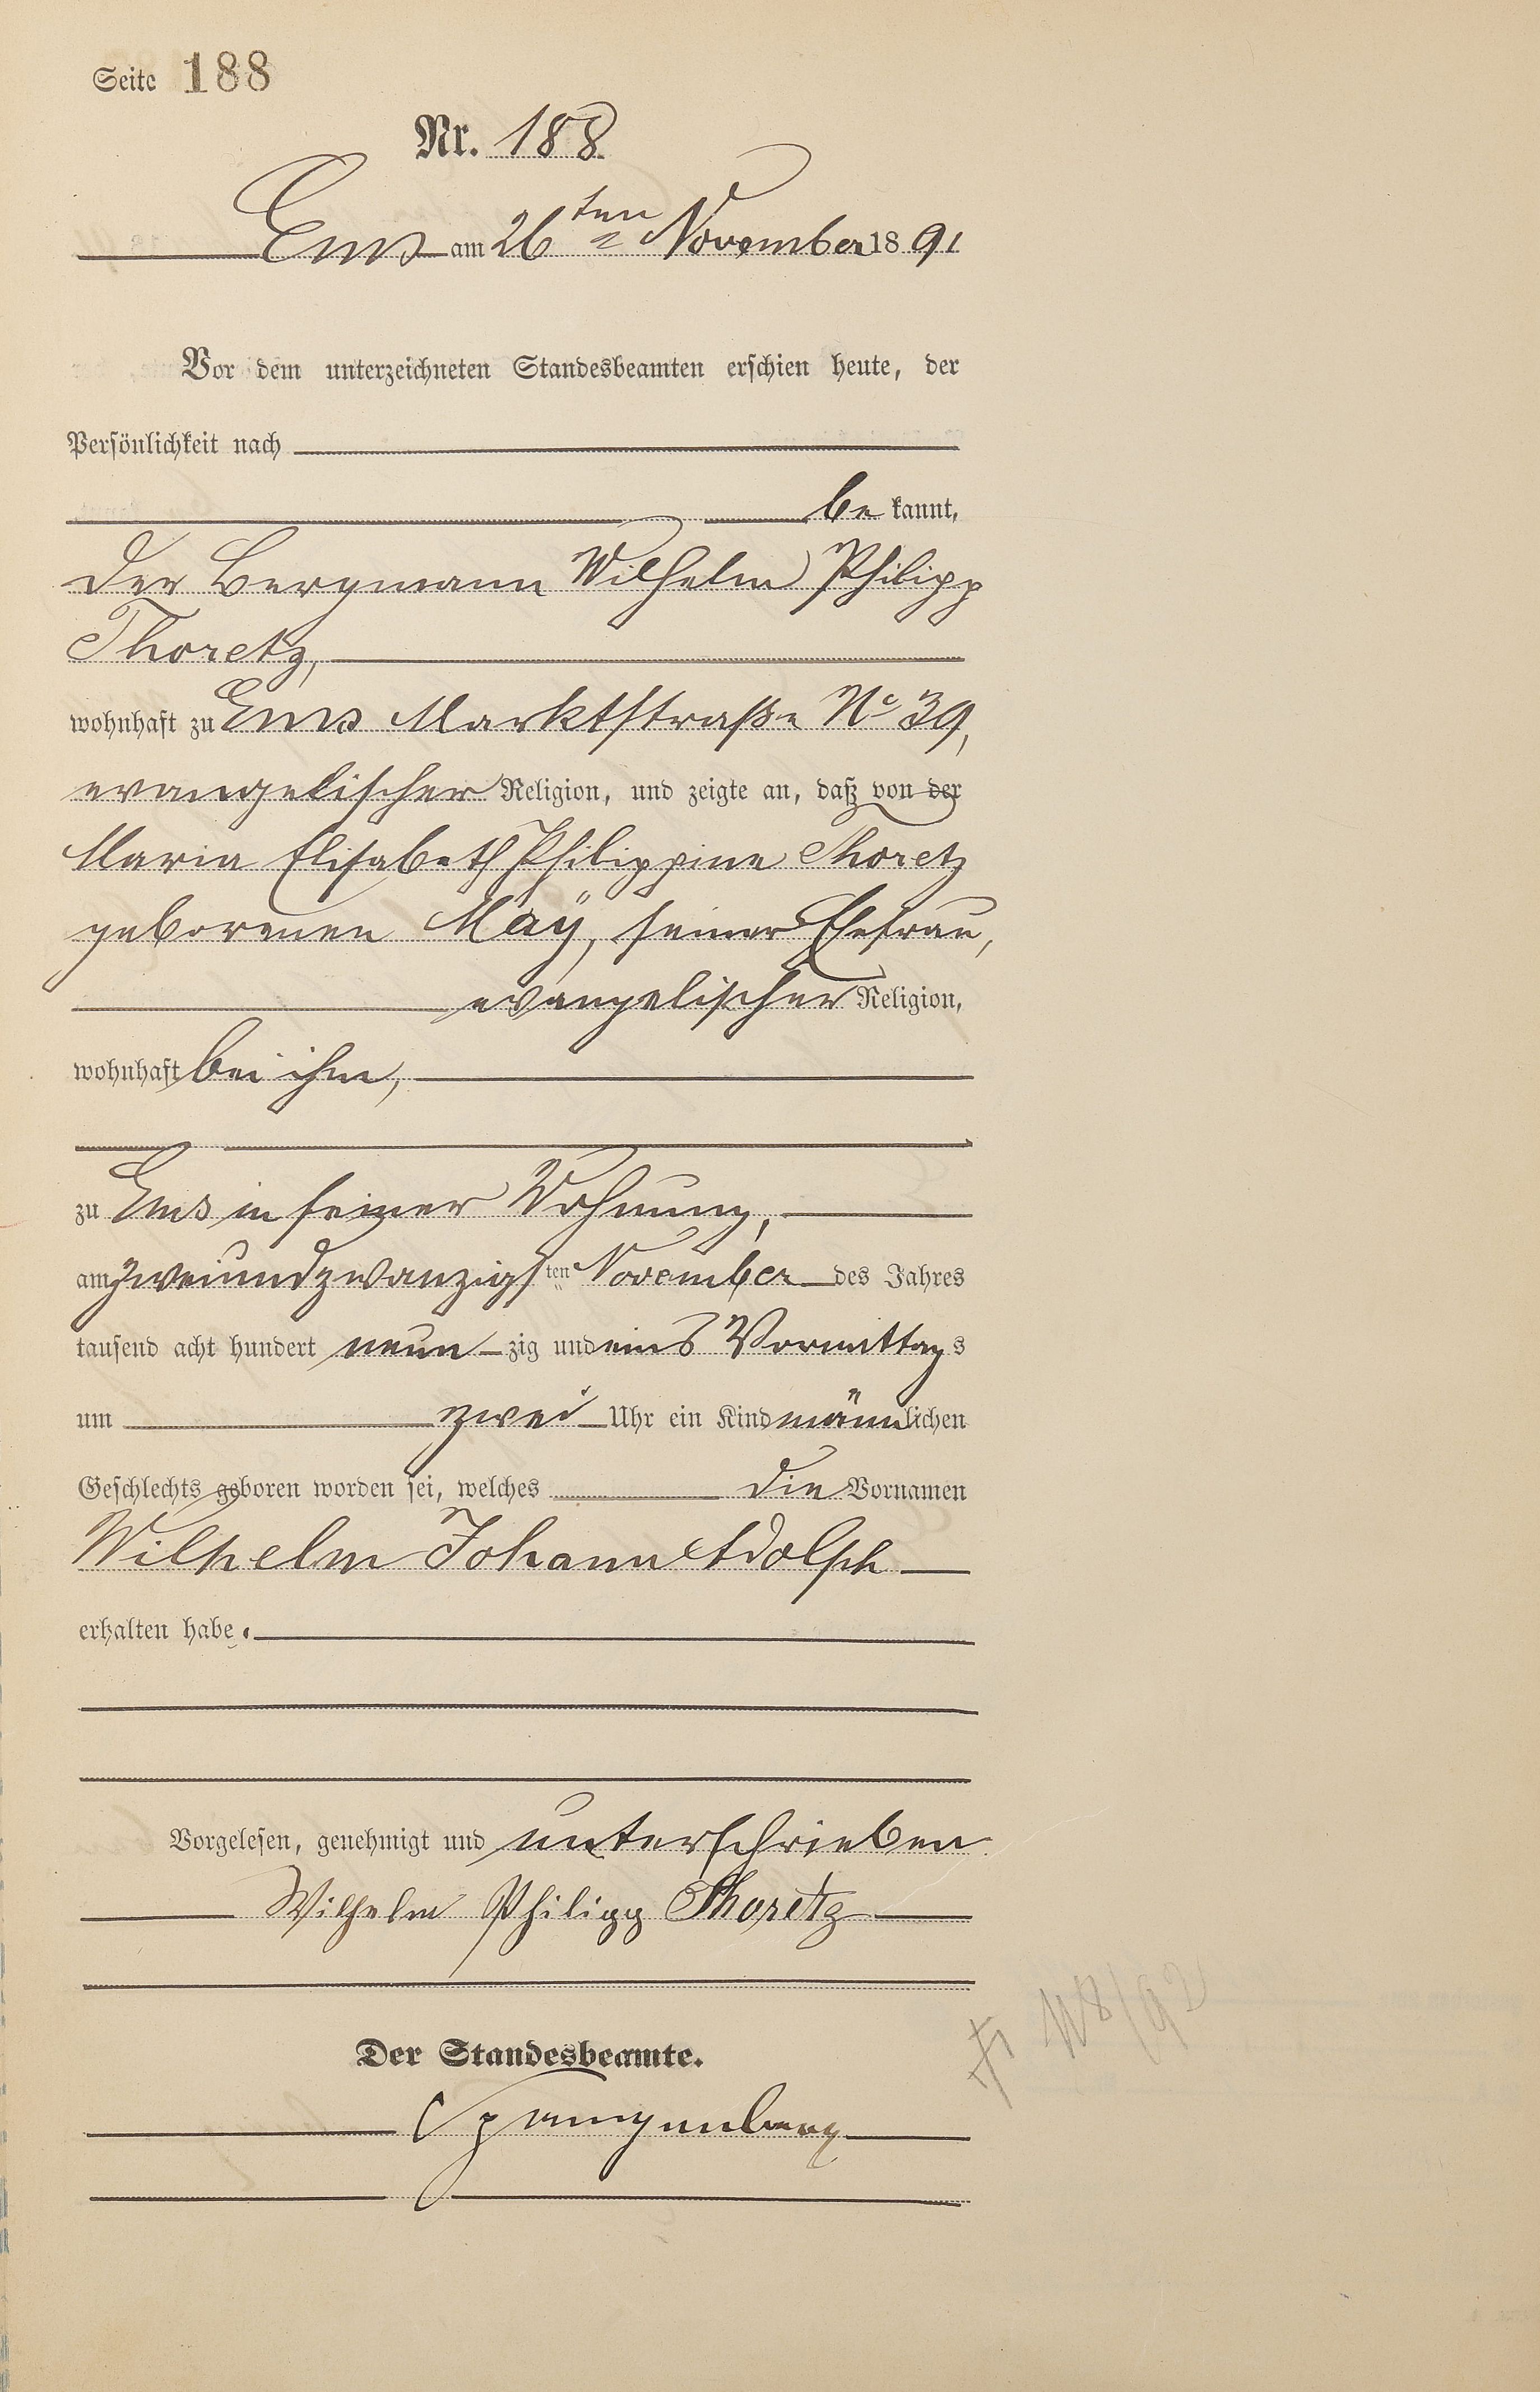 Seite 188
Nr. 188
Ems am 26ten November 1891
Vor dem unterzeichneten Standesbeamten erschien heute, der
Persönlichkeit nach
be kannt,
der Bergmann Wilhelm Philipp
Thoretz,
wohnhaft zu Ems Marktstraße No 39,
evangelischer Religion, und zeigte an, daß von der
Maria Elisabeth Philippine Thoretz
geborenen Maÿ, seiner Ehefrau,
evangelischer Religion,
wohnhaft bei ihm,
zu Ems in seiner Wohnung,
am zweiundzwanzigsten November des Jahres
tausend acht hundert neun zig und eins Vormittags
um zwei Uhr ein Kind männlichen
Geschlechts geboren worden sei, welches die Vornamen
Wilhelm Johann Adolph
erhalten habe.
Vorgelesen, genehmigt und unterschrieben
Wilhelm Philipp Thoretz
Der Standesbeamte.
Spangenberg